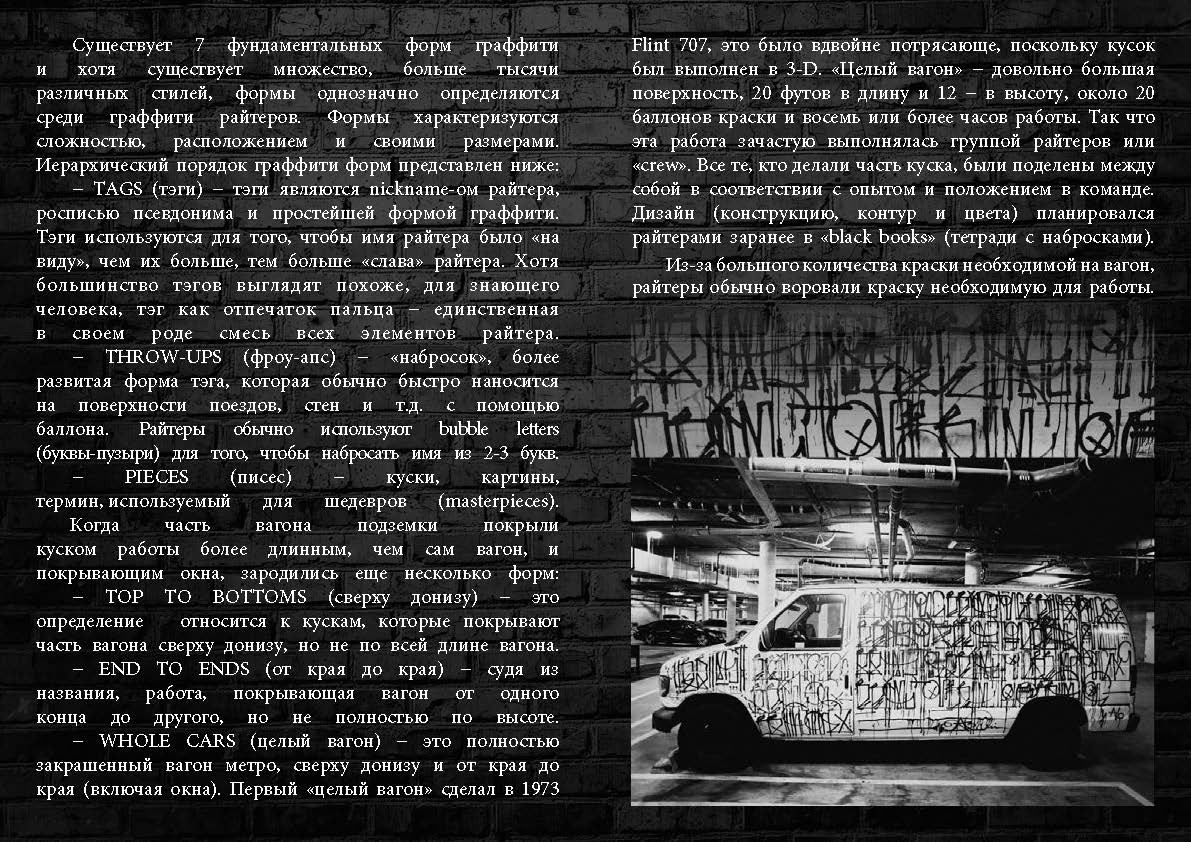 Существует 7 фундаментальных форм граффити
и хотя существует множество, больше тысячи
различных стилей, формы однозначно определяются
среди граффити райтеров. Формы характеризуются
сложностью, расположением и своими размерами.
Иерархический порядок граффити форм представлен ниже:
– TAGS (тэги) – тэги являются nickname-ом райтера,
росписью псевдонима и простейшей формой граффити.
Тэги используются для того, чтобы имя райтера было «на
виду», чем их больше, тем больше «слава» райтера. Хотя
большинство тэгов выглядят похоже, для знающего
человека, тэг как отпечаток пальца – единственная
в своем роде смесь всех элементов райтера.
– THROW-UPS (фроу-апс) – «набросок», более
развитая форма тэга, которая обычно быстро наносится
на поверхности поездов, стен и т.д. с помощью
баллона. Райтеры обычно используют bubble letters
(буквы-пузыри) для того, чтобы набросать имя из 2-3 букв.
– PIECES (писес) – куски, картины,
термин, используемый для шедевров (masterpieces).
Когда часть вагона подземки покрыли
куском работы более длинным, чем сам вагон, и
покрывающим окна, зародились еще несколько форм:
– TOP TO BOTTOMS (сверху донизу) – это
определение относится к кускам, которые покрывают
часть вагона сверху донизу, но не по всей длине вагона.
– END TO ENDS (от края до края) – судя из
названия, работа, покрывающая вагон от одного
конца до другого, но не полностью по высоте.
– WHOLE CARS (целый вагон) – это полностью
закрашенный вагон метро, сверху донизу и от края до
края (включая окна). Первый «целый вагон» сделал в 1973
Flint 707, это было вдвойне потрясающе, поскольку кусок
был выполнен в 3-D. «Целый вагон» – довольно большая
поверхность, 20 футов в длину и 12 – в высоту, около 20
баллонов краски и восемь или более часов работы. Так что
эта работа зачастую выполнялась группой райтеров или
«crew». Все те, кто делали часть куска, были поделены между
собой в соответствии с опытом и положением в команде.
Дизайн (конструкцию, контур и цвета) планировался
райтерами заранее в «black books» (тетради с набросками).
Из-за большого количества краски необходимой на вагон,
райтеры обычно воровали краску необходимую для работы.